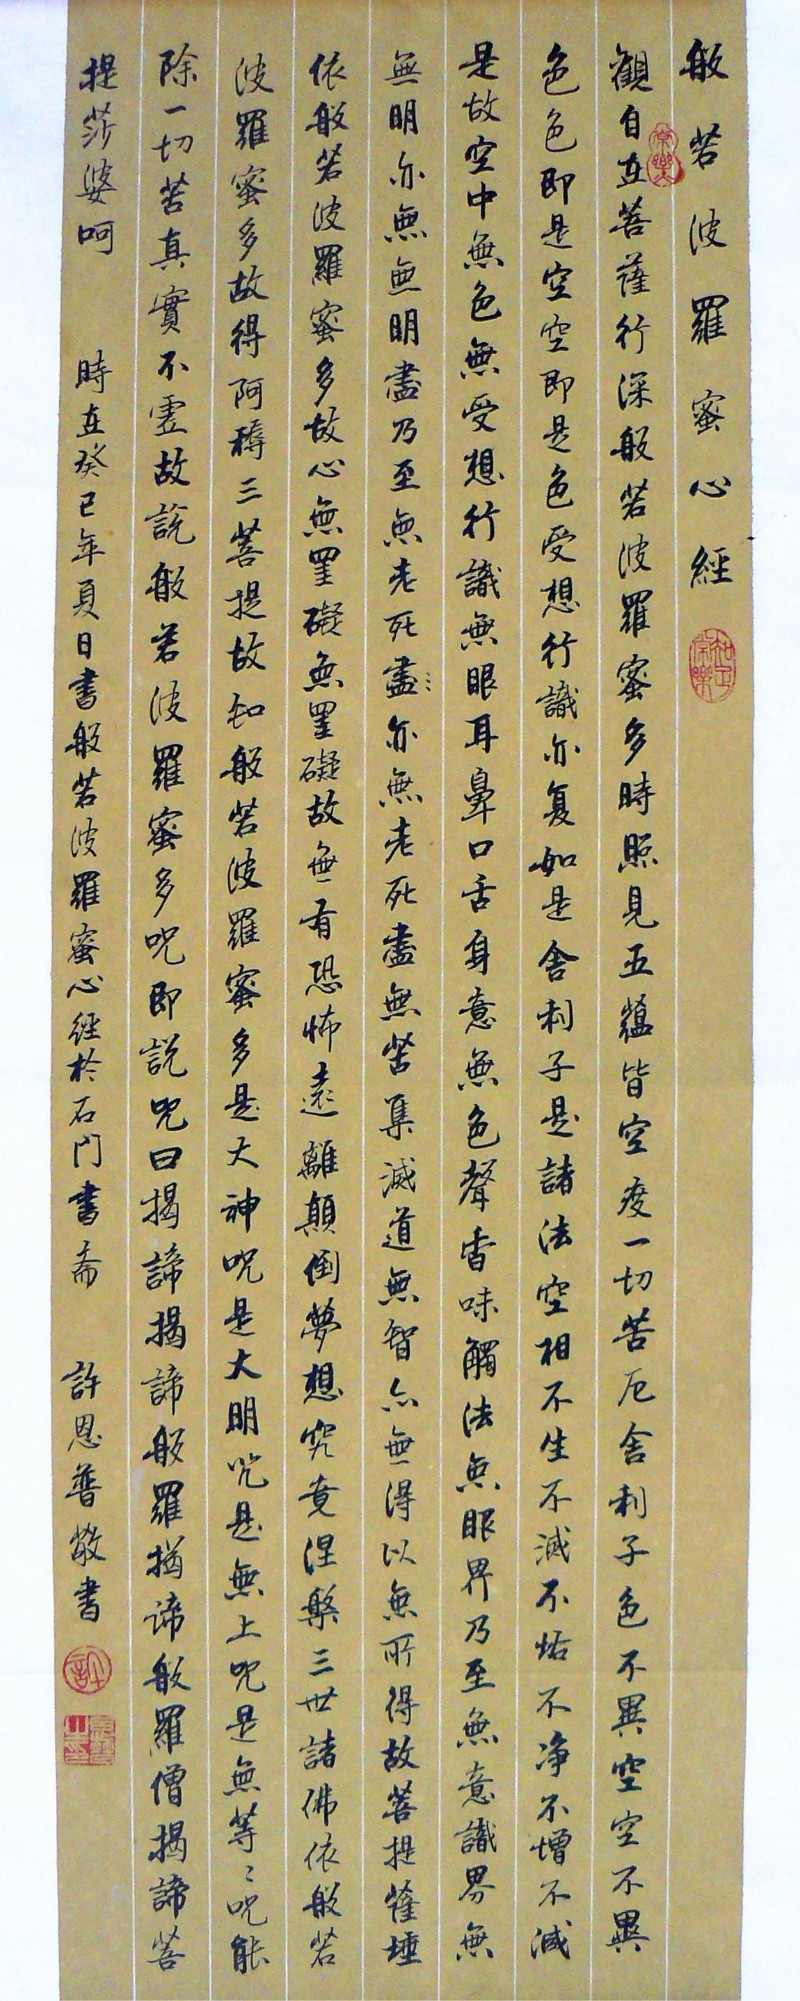 般若波羅蜜心經
知足常樂
常樂
觀自在菩薩行深般若波羅蜜多時照見五蘊皆空度一切苦厄舍利子色不異空空不異
色色即是空空即是色受想行識亦复如是舍利子是諸法空相不生不滅不垢不净不增不減
是故空中無色無受想行識無眼耳鼻口舌身意無色聲香味觸法無眼界乃至無意識界無
無明亦無無明盡乃至無老死盡亦無老死盡無苦集滅道無智亦無得以無所得故菩提薩埵
依般若波羅蜜多故心無罣礙無罣礙故無有恐怖遠離顛倒夢想究竟涅槃三世諸佛依般若
波羅蜜多故得阿耨三菩提故知般若波羅蜜多是大神咒是大明咒是無上咒是無等〻咒能
除一切苦真實不虛故說般若波羅蜜多咒即說咒曰揭諦揭諦般羅揭諦般羅僧揭諦菩
提莎婆呵 時在癸巳年夏日書般若波羅蜜心經於石門書斋 許恩普敬書
許